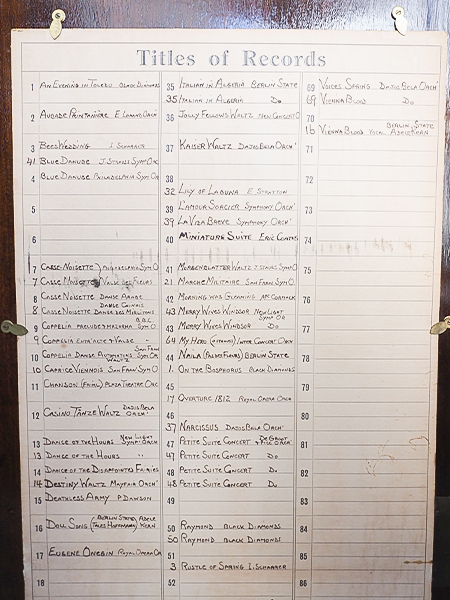 Titles of Records
1 AN EVENING IN TOLEDO BLACK DIAMONDS
2 AUBADE PRINTANIÈRE E LOMAND ORCH
3 BEES WEDDING I. SCHARRER
41 BLUE DANUBE J. STRAUS SYM ORC
4 BLUE DANUBE PHILADELPHIA SYM OR
5
6
7 CASSE-NOISETTE SYM O
7 CASSE NOISETTE VALSE DES FLEURS
8 CASSE NOISETTE DANSE ARABE
DANSE CHINOIS
8 CASSE NOISETTE DANSE DES MIRLITONS
B.B.C.
9 COPPELIA PRELUDE & MAZURKA SYM O
9 COPPELIA ENTR'ACTE & VALSE "
SAN FRAN
10 COPPELIA DANSE AUTOMATONS SYM OR
WALTZ
10 CAPRICE VIENNOIS SAN FRAN SYM O
11 CHANSON (FRIML) PLAZA THEATRE ORC
12 CASINO TANZE WALTZ DAJOS BELA ORCH'
13 DANCE OF THE HOURS NEW LIGHT SYMP. ORCH
13 DANCE OF THE HOURS "
14 DANCE OF THE DISAPPOINTED FAIRIES
14 DESTINY WALTZ MAYFAIR ORCH'
15 DEATHLESS ARMY P. DAWSON
16 DOLL SONG (BERLIN STATE TALES HOFFMANN) ADELE KERN
17 EUGENE ONEGIN (ROYAL OPERA O
18
35 ITALIAN IN ALGERIA BERLIN STATE
35 ITALIAN IN ALGERIA DO
36 JOLLY FELLOWS WALTZ NEW CONCERT O
37 KAISER WALTZ DAJOS BELA ORCH'
38
32 LILY OF LAGUNA E STRATTON
39 L'AMOUR SORCIER SYMPHONY ORCH'
39 LA VIDA BREVE SYMPHONY ORCH'
40 MINIATURE SUITE ERIC COATES
41 MORGENBLATTER WALTZ J. STRAUS SYM O
21 MARCHE MILITAIRE SAN FRAN SYM O
42 MORNING WAS GLEAMING AM. CORMACK
43 MERRY WIVES WINDSOR NEW LIGHT SYMP OR
43 MERRY WIVES WINDSOR DO
64 MY HERO INTER CONCERT ORCH
44 NAILA (PAS DES FLEURS) BERLIN STATE
1. ON THE BOSPHORUS BLACK DIAMONDS
45
17 OVERTURE 1812 ROYAL OPERA ORCH
46
37 NARCISSUS DAJOS BELA ORCH'
47 PETITE SUITE CONCERT DE GROOT & PICC ORCH'
47 PETITE SUITE CONCERT DO
48 PETITE SUITE CONCERT DO
48 PETITE SUITE CONCERT DO
49
50 RAYMOND BLACK DIAMONDS
50 RAYMOND BLACK DIAMONDS
51
3 RUSTLE OF SPRING I. SCHARRER
52
69 VOICES SPRING DAJOS BELA ORCH'
69 VIENNA BLOOD DO
70
BERLIN STATE
16 VIENNA BLOOD VOCAL ADELE KERN
71
72
73
74
75
76
77
78
79
80
81
82
83
84
85
86